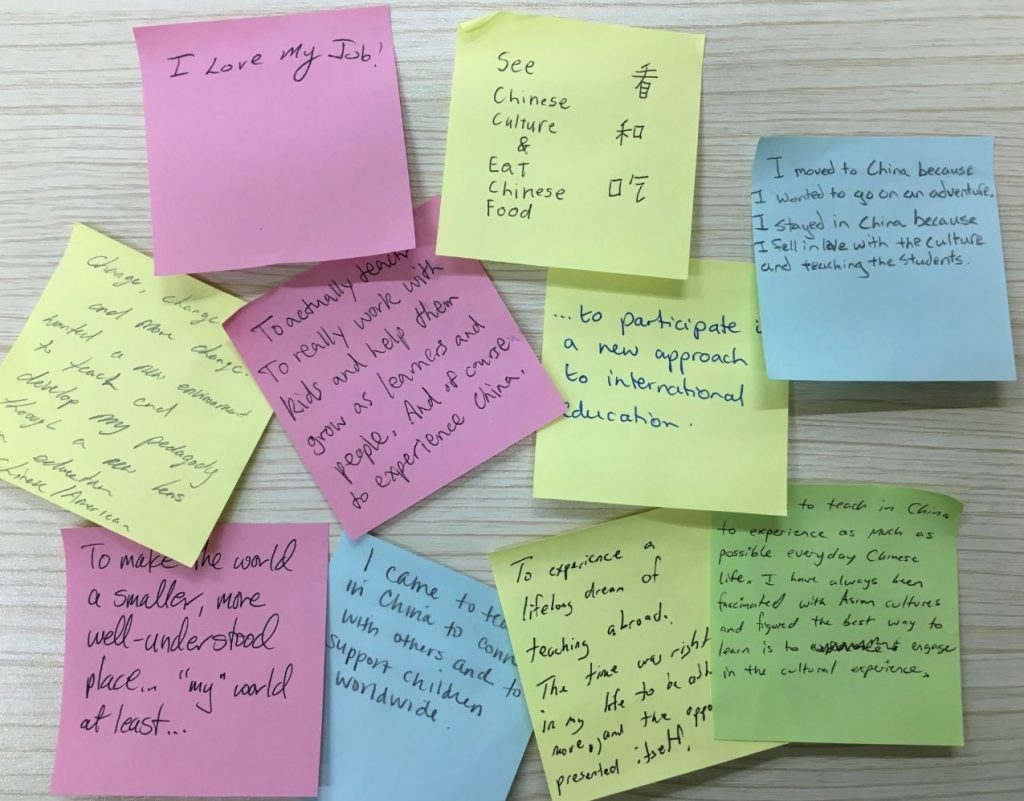 I Love My Job!
See 看
Chinese
Culture 和
&
Eat
Chinese 吃
Food
I moved to China because
I wanted to go on an adventure.
I stayed in China because
I fell in love with the culture
and teaching the students.
change, change
and more change.
wanted a new environment
to teach and
develop my pedagody
through a new lens
education
/American
To actually teach
To really work with
kids and help them
grow as learners and
people. And of course
to experience China.
...to participate
a new approach
to international
education.
To make the world
a smaller, more
well-understood
place... "my" world
at least...
I came to
in China to
with others and to
support children
worldwide.
To experience a
lifelong dream of
teaching abroad.
The time was right
in my life to be
move, and the
presented itself.
to teach in China
to experience as much as
possible everyday Chinese
life. I have always been
fascinated with Asian cultures
and figured the best way to
learn is to engage
in the cultural experience.